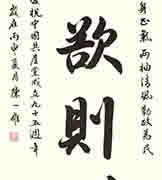 身正氣兩袖清風勤政為民
欲則
慶祝中國共產黨成立九十五週年
歲在丙申夏月陳一